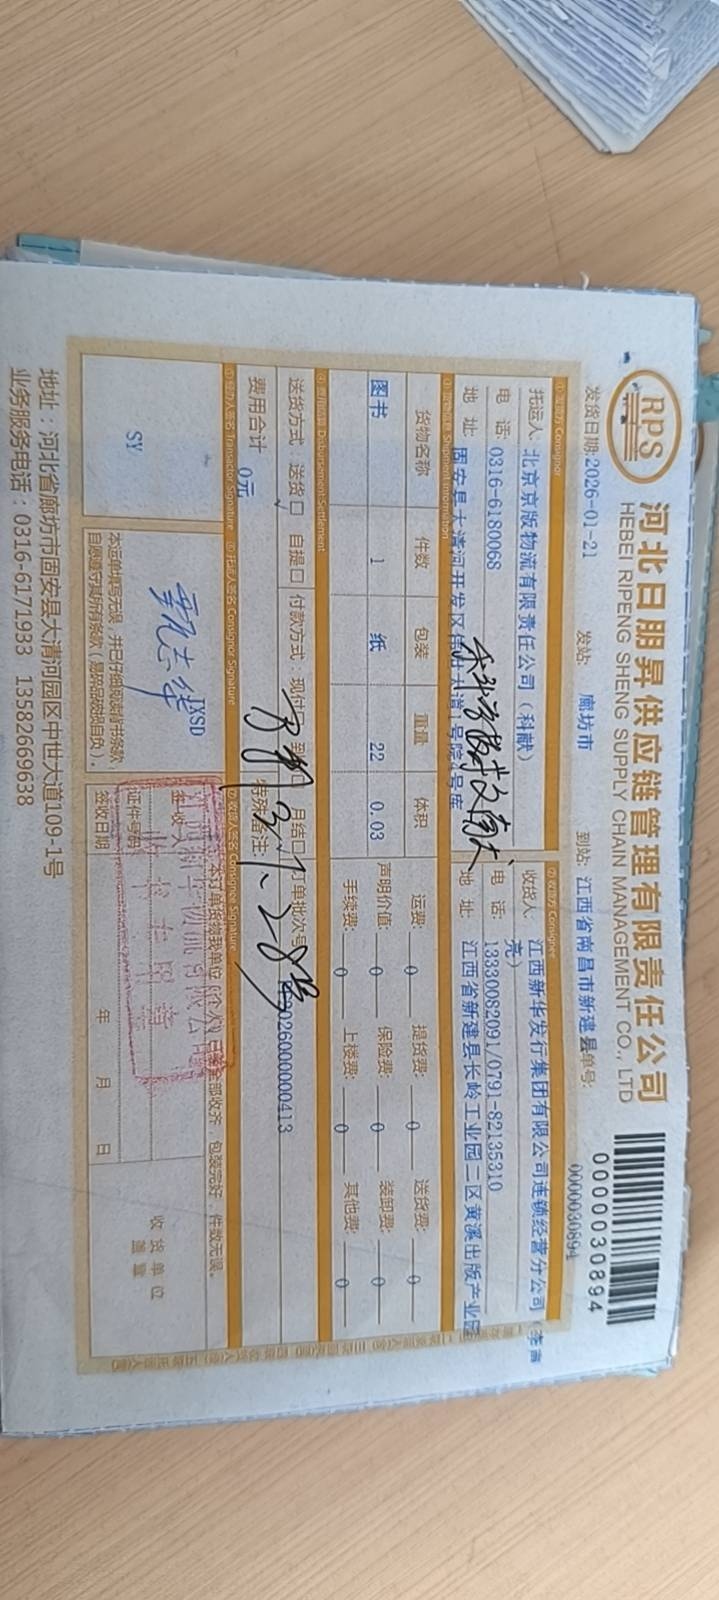 RPS
河北日朋昇供应链管理有限责任公司
HEBEI RIPENG SHENG SUPPLY CHAIN MANAGEMENT CO., LTD
0000030894
发货日期:2026-01-21 发站: 廊坊市 到站: 江西省南昌市新建县 单号: 0000030894
①发货方 Consignor
托运人: 北京京版物流有限责任公司（科献）
电 话: 0316-6180068
地 址: 固安县大清河开发区 大道1号院4号库
②收货方 Consignee
收货人: 江西新华发行集团有限公司连锁经营分公司（李言亮）
电 话: 13330082091/0791-82135310
地 址: 江西省新建县长岭工业园二区黄溪出版产业园
Shipment Information
货物名称 件数 包装 重量 体积
图书 1 纸 22 0.03
运费: 0 提货费: 0 送货费: 0
声明价值: 0 保险费: 0 装卸费: 0
手续费: 0 上楼费: 0 其他费: 0
Disbursement Settlement
送货方式: 送货□ 自提□ 付款方式: 现付□ 到 月结□ 订单批次号 2026000000413
费用合计 0元 特殊备注:
经办人签名 Transactor Signature
托运人签名 Consignor Signature
收货人签名 Consignee Signature
SY
甄志华
JXSD
本运单填写无误，并已仔细阅读背书条款
自愿遵守其所有条款（易碎品破损自负）.
本订单货物我单位（个人）已 全部收齐，包装完好，件数无误。
签收人
证件号码
签收日期 年 月 日
收货单位
盖章
地址：河北省廊坊市固安县大清河园区中世大道109-1号
业务服务电话：0316-6171933 13582669638